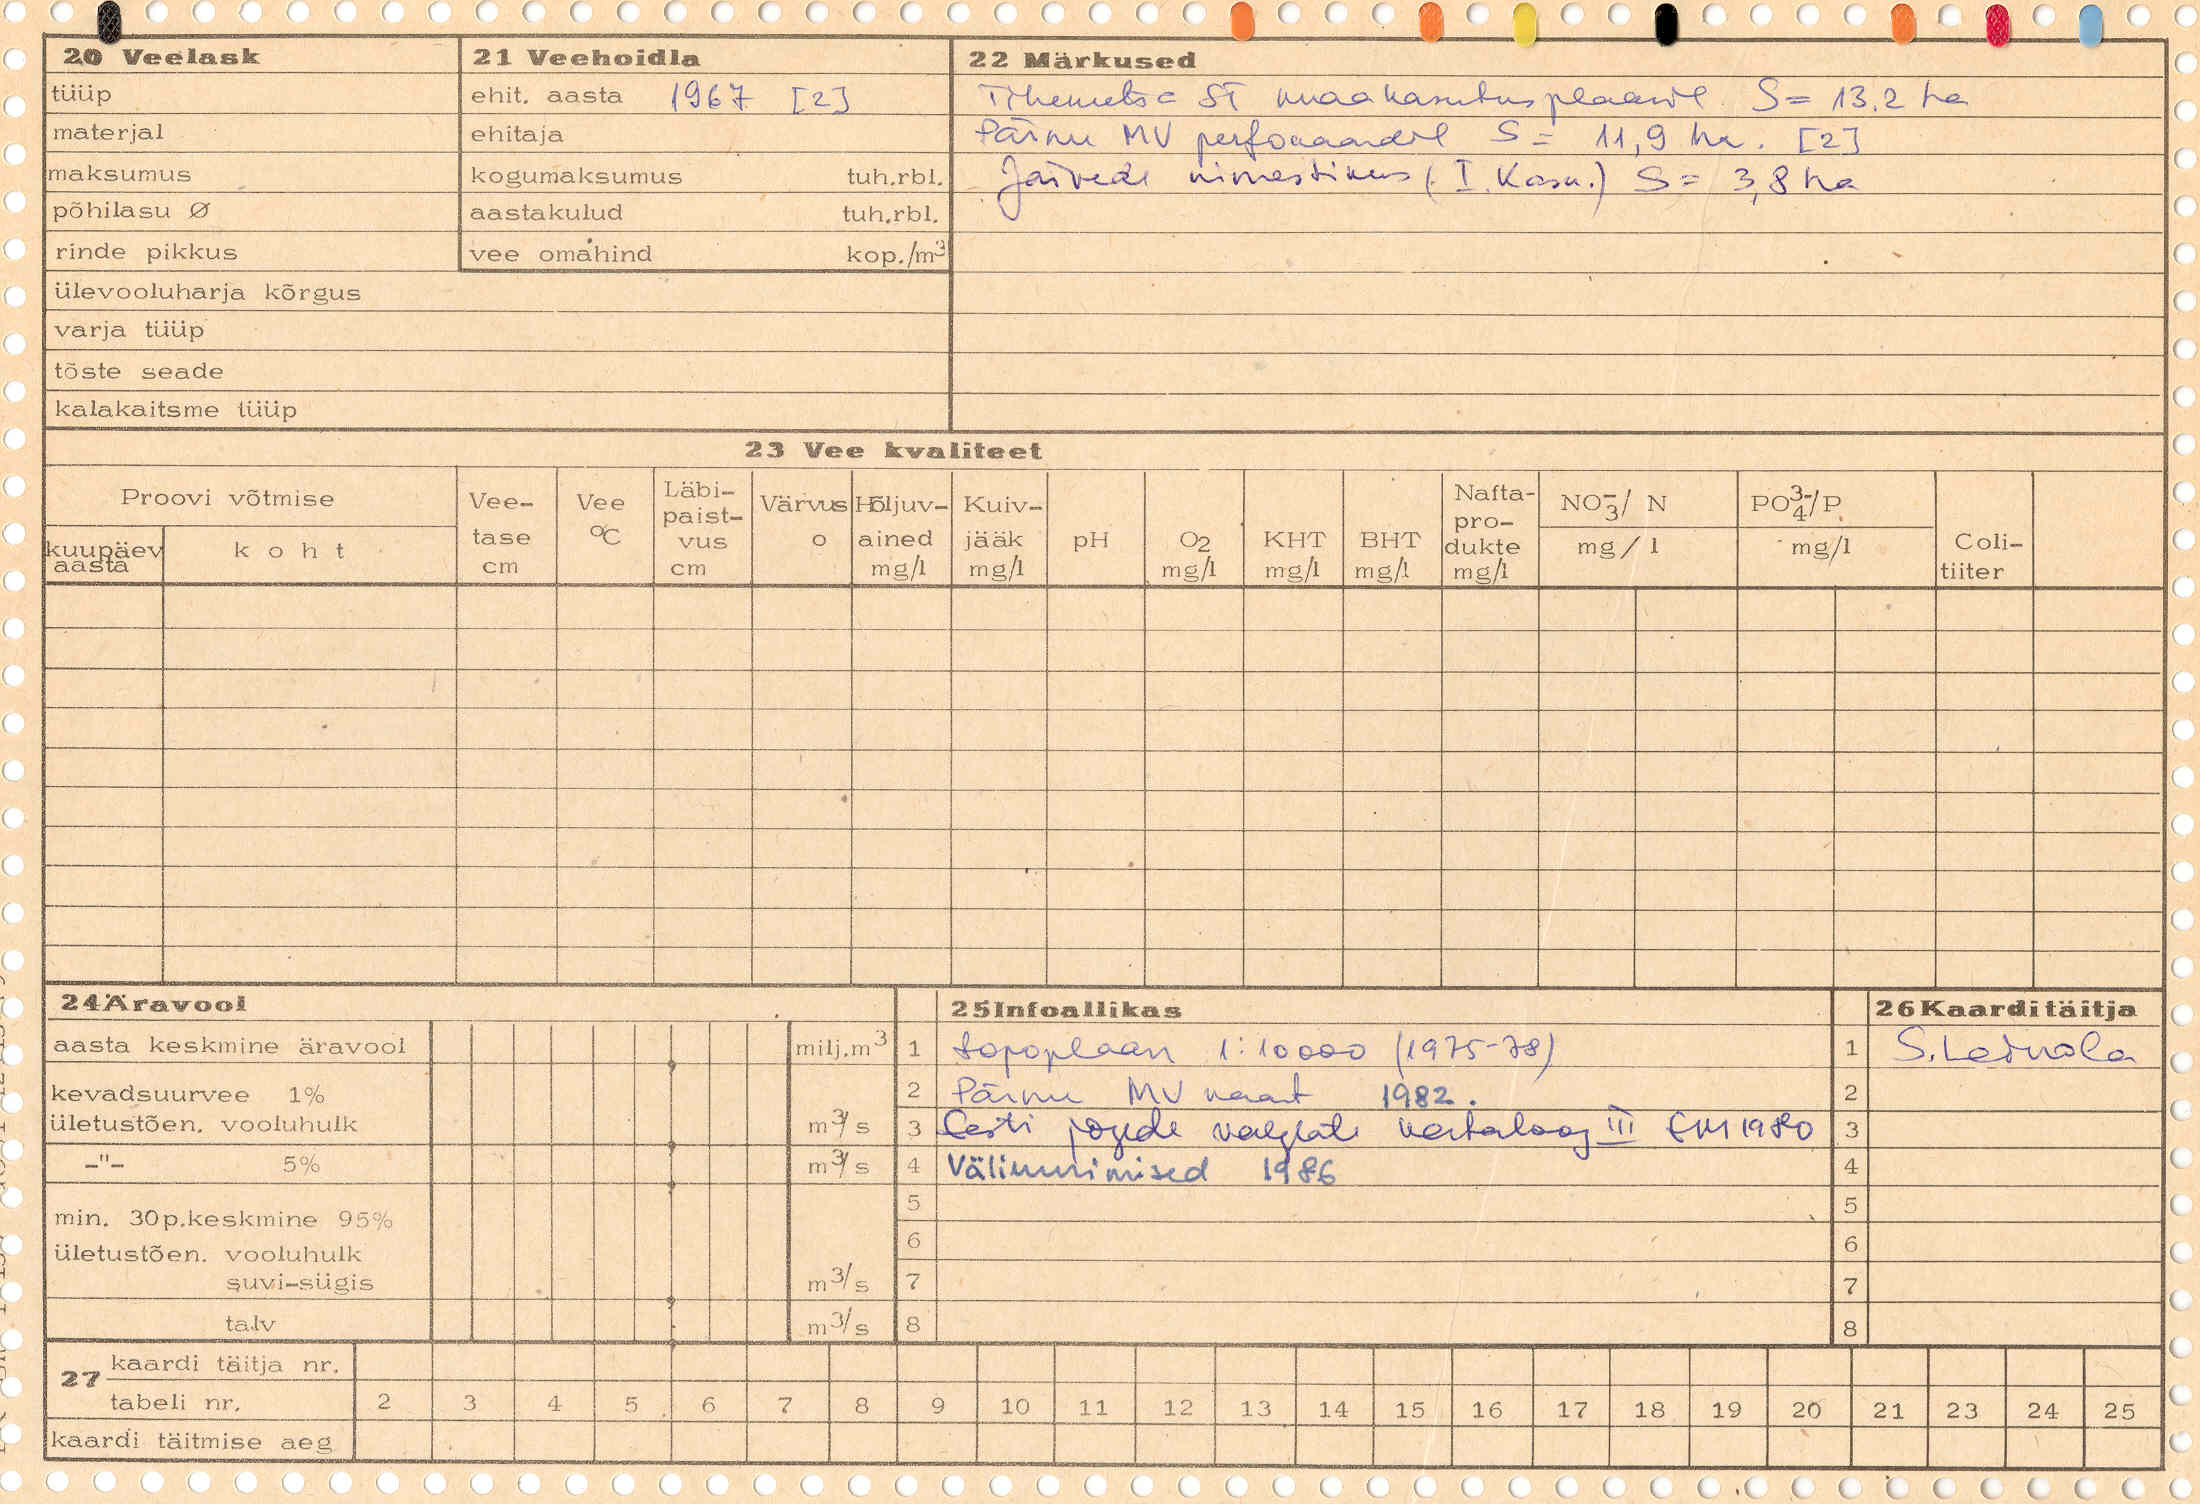 20 Veelask
tüüp
materjal
maksumus
põhilasu Ø
rinde pikkus
ülevooluharja kõrgus
varja tüüp
tõste seade
kalakaitsme tüüp
21 Veehoidla
ehit. aasta 1967 [2]
ehitaja
kogumaksumus tuh.rbl.
aastakulud tuh.rbl.
vee omahind kop./m³
22 Märkused
Tihemetsa ST maakasutusplaanil S = 13.2 ha
Pärnu MV perfokaardil S = 11,9 ha. [2]
Järvede nimestikus (I. Kask.) S = 3,8 ha
23 Vee kvaliteet
Proovi võtmise
kuupäev aasta
koht
Vee-tase cm
Vee °C
Läbi-paist-vus cm
Värvus o
Hõljuv-ained mg/l
Kuiv-jääk mg/l
pH
O2 mg/l
KHT mg/l
BHT mg/l
Nafta-pro-dukte mg/l
NO₃⁻/ N mg/l
PO₄³⁻/P mg/l
Coli-tiiter
24 Äravool
aasta keskmine äravool milj.m³
kevadsuurvee 1%
ületustõen. vooluhulk m³/s
-"- 5% m³/s
min. 30p.keskmine 95%
ületustõen. vooluhulk
suvi-sügis m³/s
talv m³/s
25 Infoallikas
1 topoplaan 1:10000 (1975-78)
2 Pärnu MV kaart 1982.
3 Eesti jõgede valglate kataloog III EM 1980
4 Väliuurimised 1986
5
6
7
8
26 Kaarditäitja
1 S. Leinola
2
3
4
5
6
7
8
27 kaardi täitja nr.
tabeli nr. 2 3 4 5 6 7 8 9 10 11 12 13 14 15 16 17 18 19 20 21 23 24 25
kaardi täitmise aeg